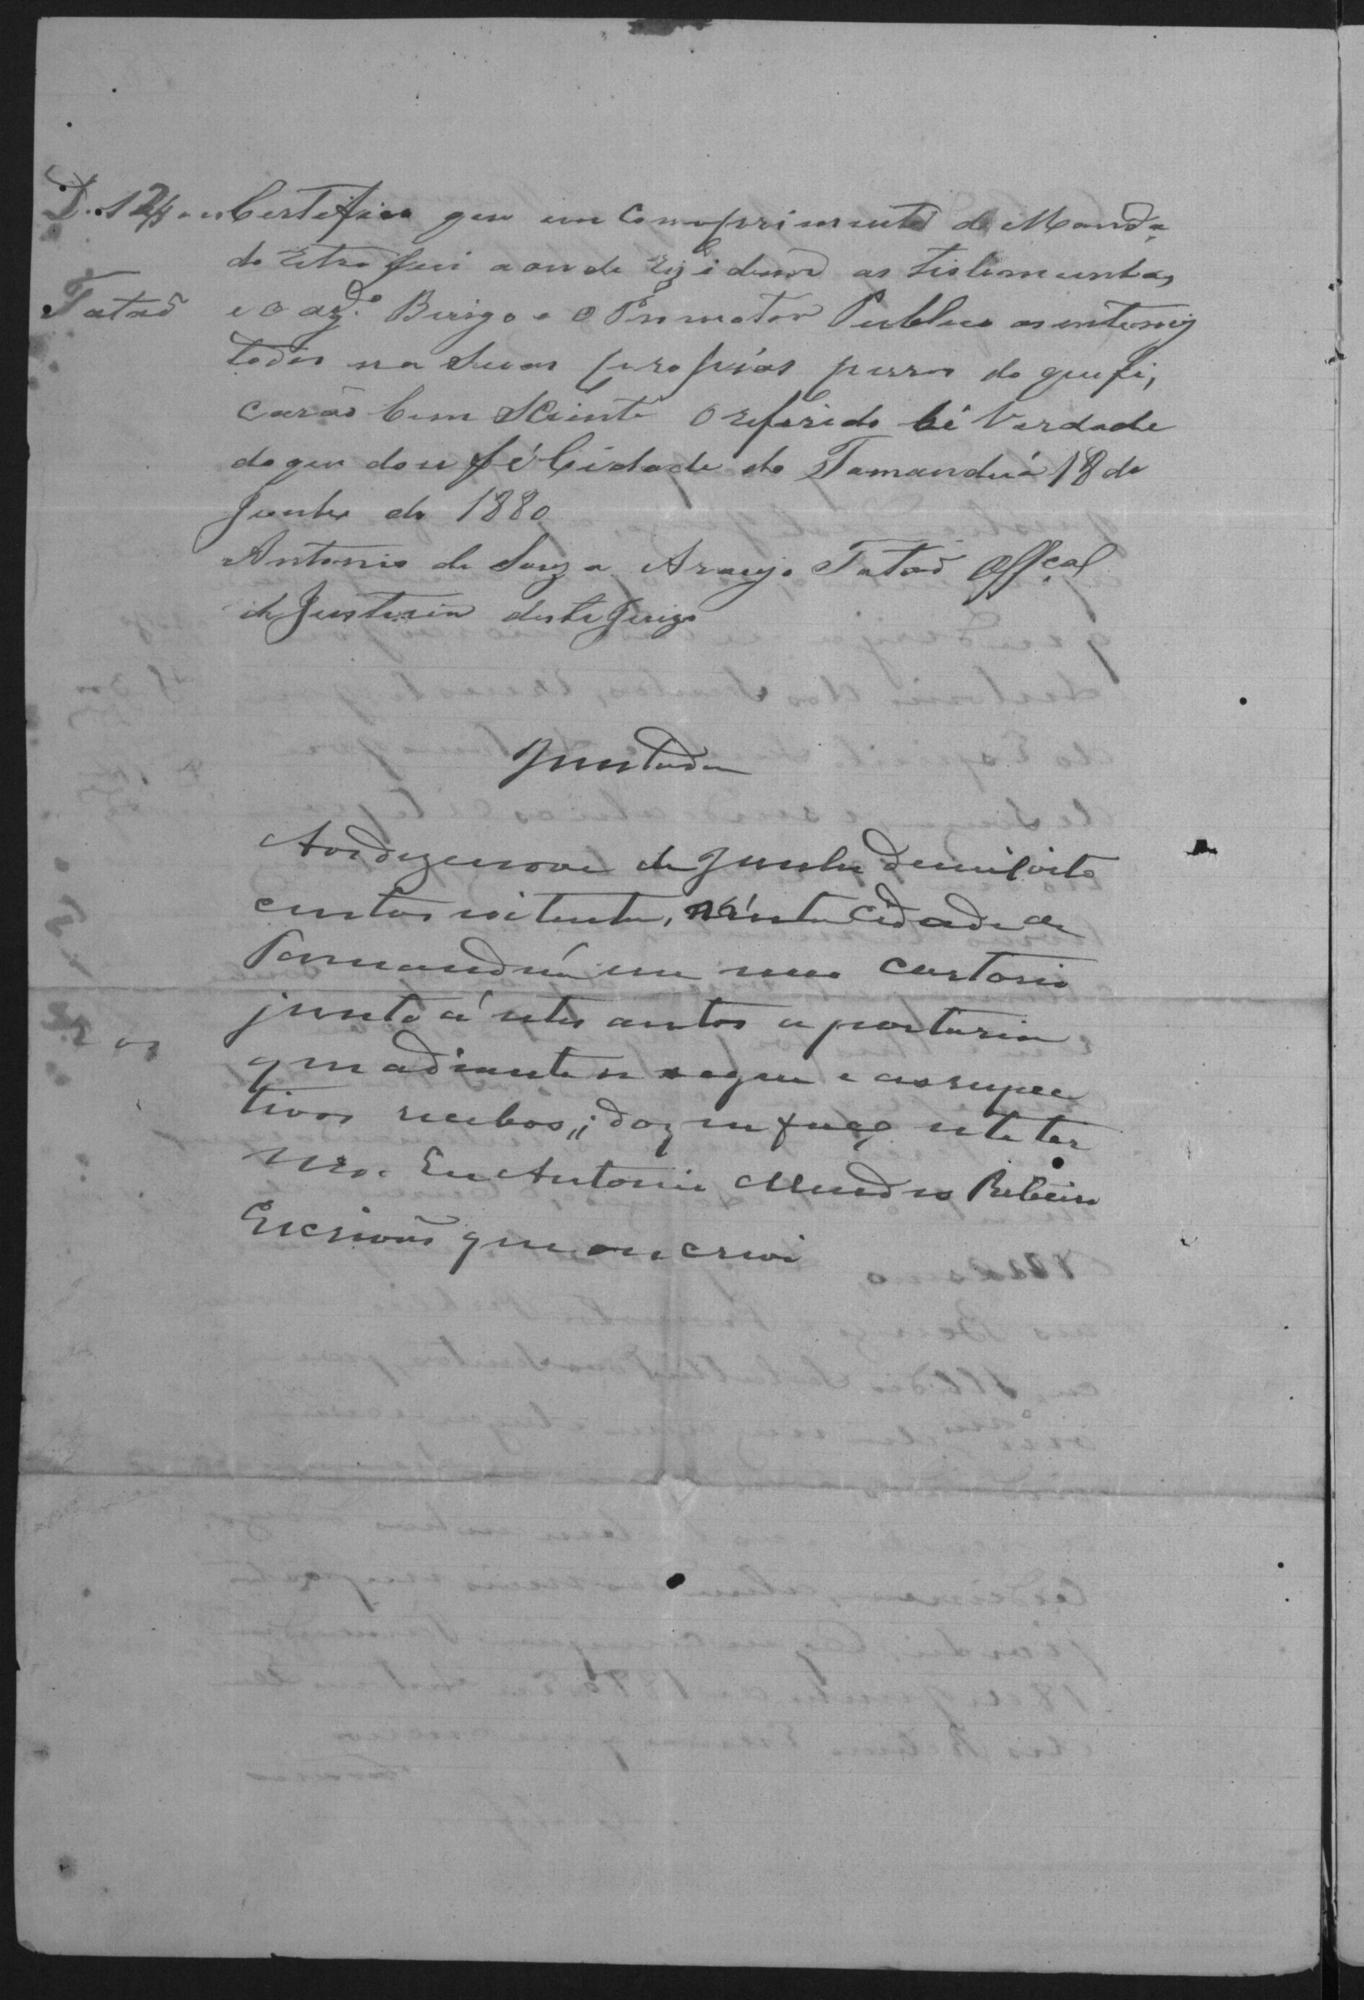 Certifico que em comprimento do Manda
do retro fui aonde rezidem as tistemunhas
e o azdo. Berigo e o Promotor Publico as entemei
todos na suas propias pessoas do que fi,
carão bem sciente O referido hé Verdade
do que dou fé Cidade do Tamanduá 18 de
Junho do 1880
Antonio de Souza Araujo Tatão Offeçal
de Justicia deste Juizo
Tatão
Juntada
Aos dezenove de Junho de mil oito
centos oitenta, n'esta Cidade de
Tamanduá em meo cartorio
junto á estes autos a portaria
que adiante se segue e as respec
tivos recibos; do que faço este ter
mo. Eu Antonio Mendes Ribeiro
Escrivão que escrevi